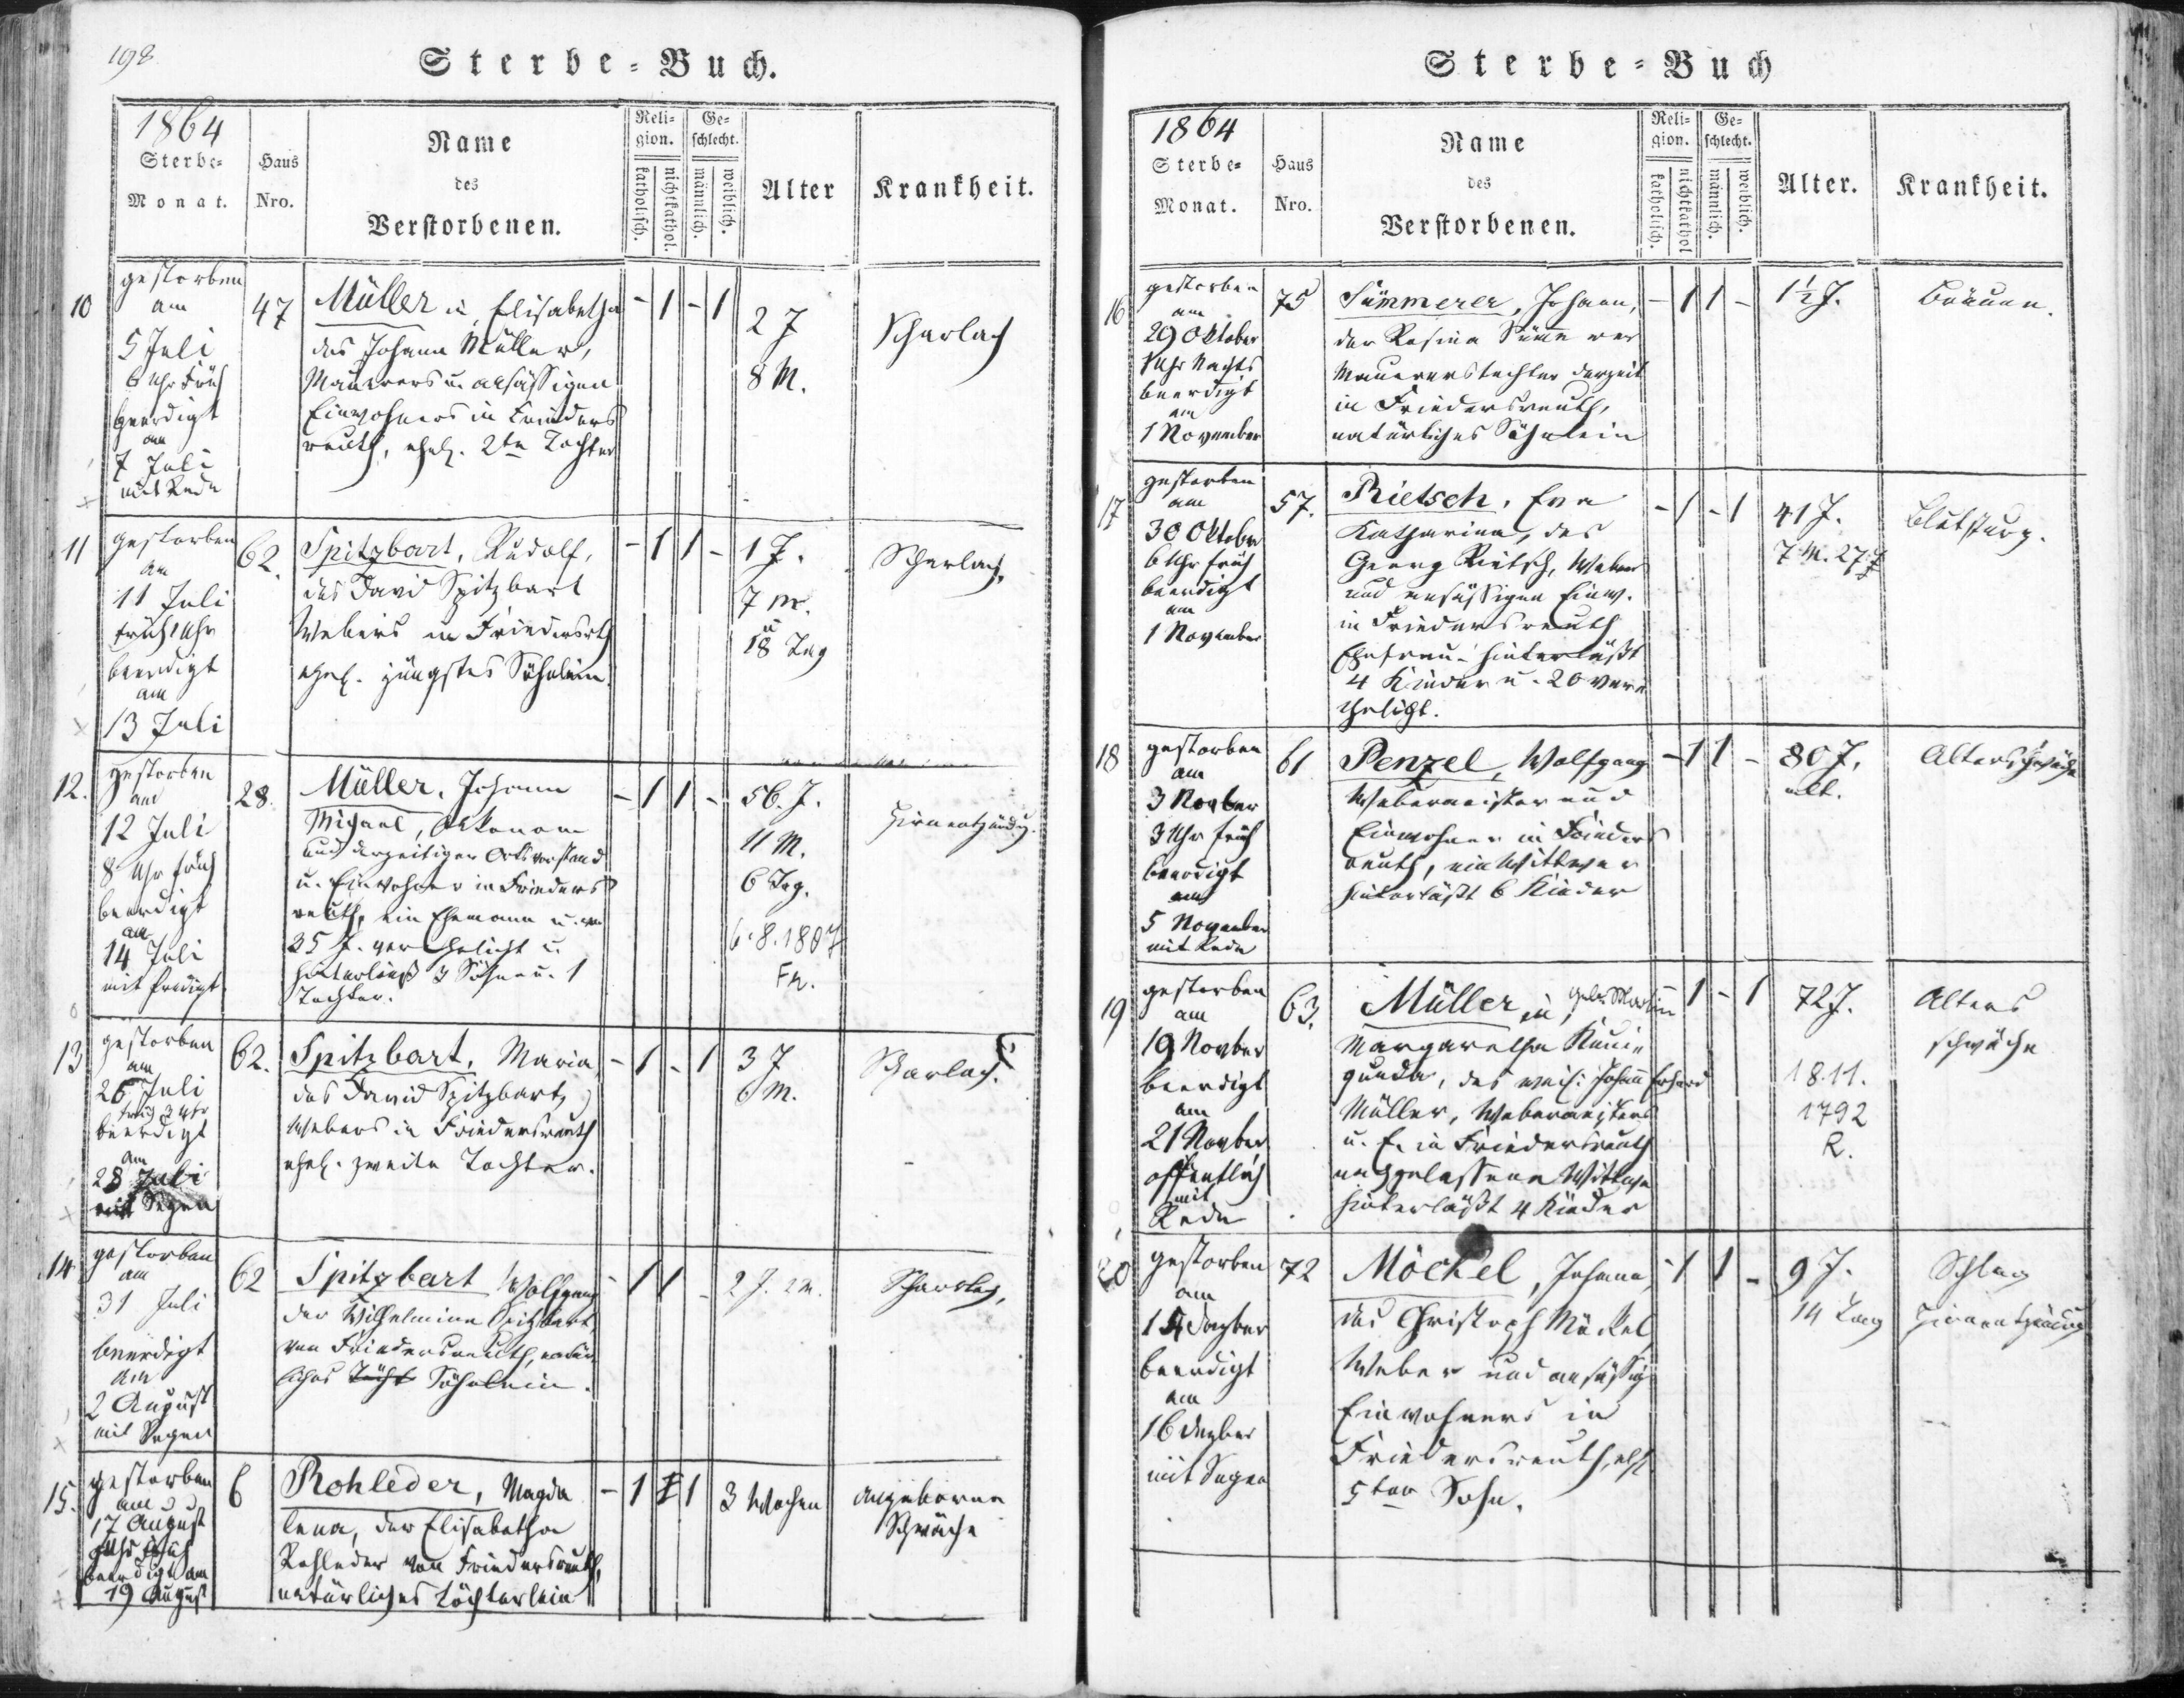 198.
Sterbe-Buch.
1864
Sterbe-
Monat.
Haus
Nro.
Name
des
Verstorbenen.
Reli-
gion.
katholisch.
nichtkathol.
Ge-
schlecht.
männlich.
weiblich.
Alter
Krankheit.
10
gestorben
am
5 Juli
6 Uhr Früh
beerdigt
am
7 Juli
mit Rede
47
Müller in, Elisabetha
des Johann Müller,
Maurers u. ansässigen
Einwohners in Frieders
reuth, ehel. 2te Tochter
- 1 - 1
2 J
8 M.
Scharlach
11
gestorben
am
11 Juli
früh 1 Uhr
beerdigt
am
13 Juli
62.
Spitzbart, Rudolf,
des David Spitzbart
Webers in Friedersrth
ehel. jüngstes Söhnlein.
- 1 1 -
1 J.
7 M.
u
18 Tag
Scharlach,
12.
gestorben
am
12 Juli
8 Uhr früh
beerdigt
am
14 Juli
mit Predigt
28.
Müller, Johann
Michael, Oekonom
und derzeitiger Ortsvorstand
u. Einwohner in Frieders
reuth, ein Ehemann u. war
35 J. verehelicht u.
hinterließ 3 Söhne u. 1
Tochter.
- 1 1 -
56. J.
11 M.
6 Tag.
6.8.1807
Fr.
Hirnentzündg.
13
gestorben
am
26 Juli
früh 3 Uhr
beerdigt
am
28 Juli
mit Segen
62.
Spitzbart, Maria
des David Spitzbart,
Webers in Friedersreuth
ehel. zweite Tochter.
- 1 - 1
3 J
6 M.
Scharlach.
14
gestorben
am
31 Juli
beerdigt
am
2 August
mit Segen
62
Spitzbart Wolfgang
der Wilhelmine Spitzbart,
von Friedersreuth, natür
liches Töcht Söhnlein.
- 1 1 -
2 J. 2 M.
Scharlach,
15.
gestorben
am
17 August
früh
beerdigt am
19 August
6
Rohleder, Magda
lena, der Elisabetha
Rohleder von Friedersreuth,
natürliches Töchterlein
- 1 1 1
3 Wochen
angeborene
Schwäche
Sterbe-Buch
1864
Sterbe-
Monat.
Haus
Nro.
Name
des
Verstorbenen.
Reli-
gion.
katholisch.
nichtkathol
Ge-
schlecht.
männlich.
weiblich.
Alter.
Krankheit.
16
gestorben
am
29 Oktober
1 Uhr Nachts
beerdigt
am
1 November
75
Sümmerer, Johann,
der Rosina Sümmerer
Maurerstochter derzeit
in Friedersreuth,
natürliches Söhnlein
- 1 1 -
1½ J.
Bräune.
17
gestorben
am
30 Oktober
6 Uhr früh
beerdigt
am
1 November
57.
Rietsch, Eva
Katharina, des
Georg Rietsch, Webers
und ansässigen Einw.
in Friedersreuth
Ehefrau - hinterläßt
4 Kinder u. 20 vere
helicht.
- 1 - 1
41 J.
7 M. 27 T
Blutsturz.
18
gestorben
am
3 Novber
3 Uhr früh
beerdigt
am
5 November
mit Rede
61
Penzel, Wolfgang
Webermeister und
Einwohner in Frieders
reuth, ein Wittwer
hinterläßt 6 Kinder
- 1 1 -
80 J.
alt.
Altersschwäche
19
gestorben
am
19 Novber
beerdigt
am
21 Novber
öffentlich
mit
Rede
63.
Müller in, geb. Martin
Margaretha Kuni-
gunda, des weil: Johann Erhard
Müller, Webermeisters
u. E. in Friedersreuth
nachgelassene Wittwe
hinterläßt 4 Kinder
1 - 1
72 J.
18.11.
1792
R.
Alters
schwäche
20
gestorben
am
14 Dezber
beerdigt
am
16 Dezber
mit Segen
72
Möckel, Johann,
des Christoph Möckel
Weber und ansässig
Einwohners in
Friedersreuth, ehl.
5ter Sohn.
- 1 1 -
9 J.
14 Tag
Schlag
Hirnentzündung